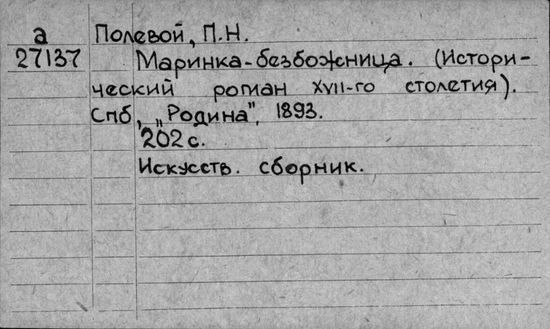 а Полевой, П.Н.
27137 Маринка-безбожница. (Истори-
ческий роман XVII-го столетия).
Спб, „Родина", 1893.
202 с.
Искусств. сборник.